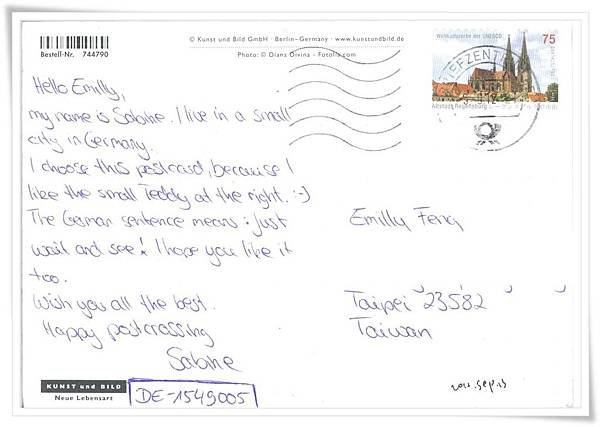 © Kunst und Bild GmbH · Berlin–Germany · www.kunstundbild.de
Bestell-Nr. 744790
Photo: © Diana Divina - Fotolia.com
Weltkulturerbe der UNESCO
75
Altstadt Regensburg
Hello Emilly,
my name is Sabine. I live in a small
city in Germany.
I choose this postcard, because I
like the small Teddy at the right. :-)
The German sentence means: just
wait and see! I hope you like it
too.
Wish you all the best.
Happy postcrossing
Sabine
Emilly Feng
Taipei 23582
Taiwan
KUNST und BILD
Neue Lebensart
DE-1549005